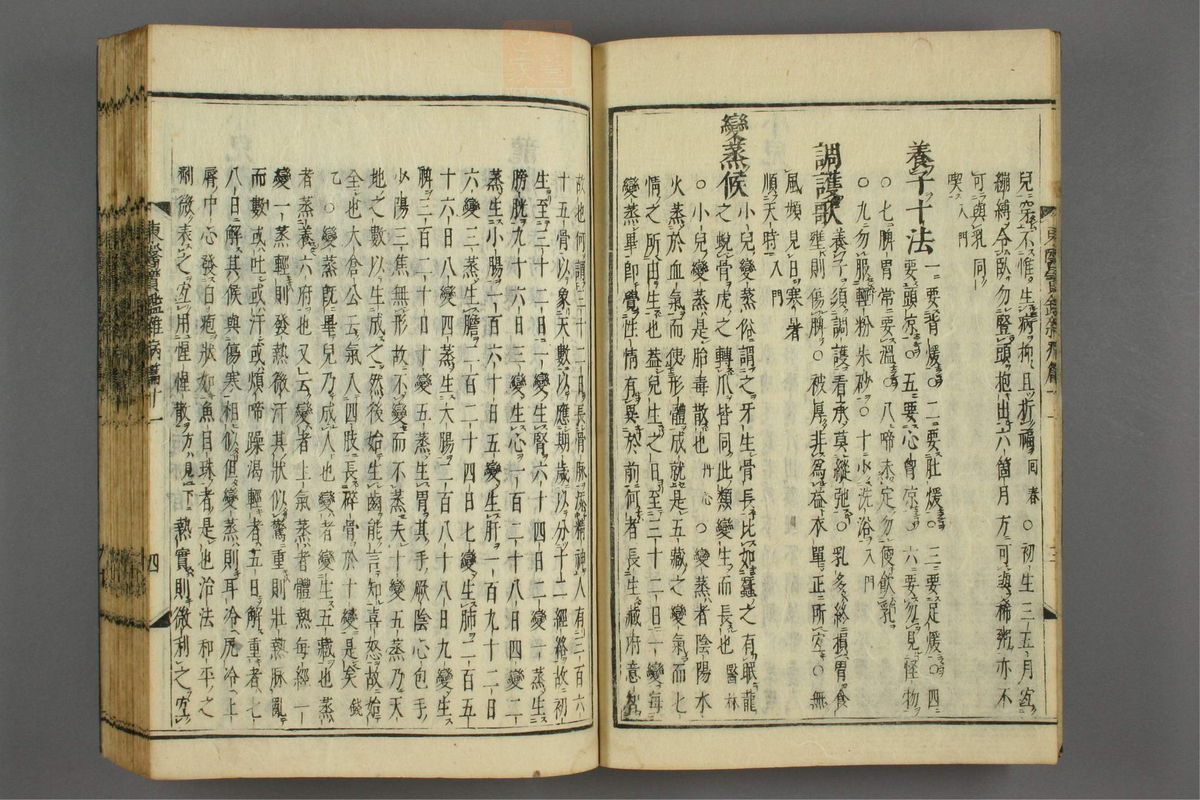 兒穿不惟生病抑且折福回春○初生三五月宜
綳縛令臥勿竪頭抱出六箇月方可與稀粥亦不
可與乳同
喫入門
養子十法一要背煖○二要肚煖○三要足煖○四
要頭凉○五要心胷凉○六要勿見怪物
○七脾胃常要溫○八啼未定勿便飮乳
○九勿服輕粉朱砂○十少洗浴入門
調護歌養子須調護看承莫縱弛○乳多終損胃食
壅則傷脾○被厚非爲益衣單正所宜○無
風頻見日寒暑
順天時入門
變蒸候小兒變蒸俗謂之牙生骨長比如蠶之有眠龍
之蛻骨虎之轉爪皆同此類變生而長也醫林
○小兒變蒸是胎毒散也門心○變蒸者陰陽水
火蒸於血氣而使形體成就是五藏之變氣而七
情之所由生也盖兒生之日至三十二日一變每
變蒸畢卽覺性情有異於前何者長生藏府意智
故也何謂三十二日長骨脉添精神人有三百六
十五骨以象天數以應期歲以分十二經絡故初
生至三十二日一變生腎六十四日二變一蒸生
膀胱九十六日三變生心一百二十八日四變二
蒸生小腸一百六十日五變生肝一百九十二日
六變三蒸生膽二百二十四日七變生肺二百五
十六日八變四蒸生大腸二百八十八日九變生
脾三百二十日十變五蒸生胃其手厥陰心包手
少陽三焦無形故不變而不蒸夫十變五蒸乃天
地之數以生成之然後始生齒能言知喜怒故始
全也太倉公云氣入四肢長碎骨於十變是矣錢
乙○變蒸旣畢兒乃成人也變者變生五藏也蒸
者蒸養六府也又云變者上氣蒸者體熱每經一
變一蒸輕則發熱微汗其狀似驚重則壯熱脉亂
而數或吐或汗或煩啼躁渴輕者五日解重者七
八日解其候與傷寒相似但變蒸則耳冷尻冷上
脣中心發白疱狀如魚目珠者是也治法和平之
劑微表之宜用惺惺散方見下熱實則微利之宜
東醫寶鑑雜病篇十一
四